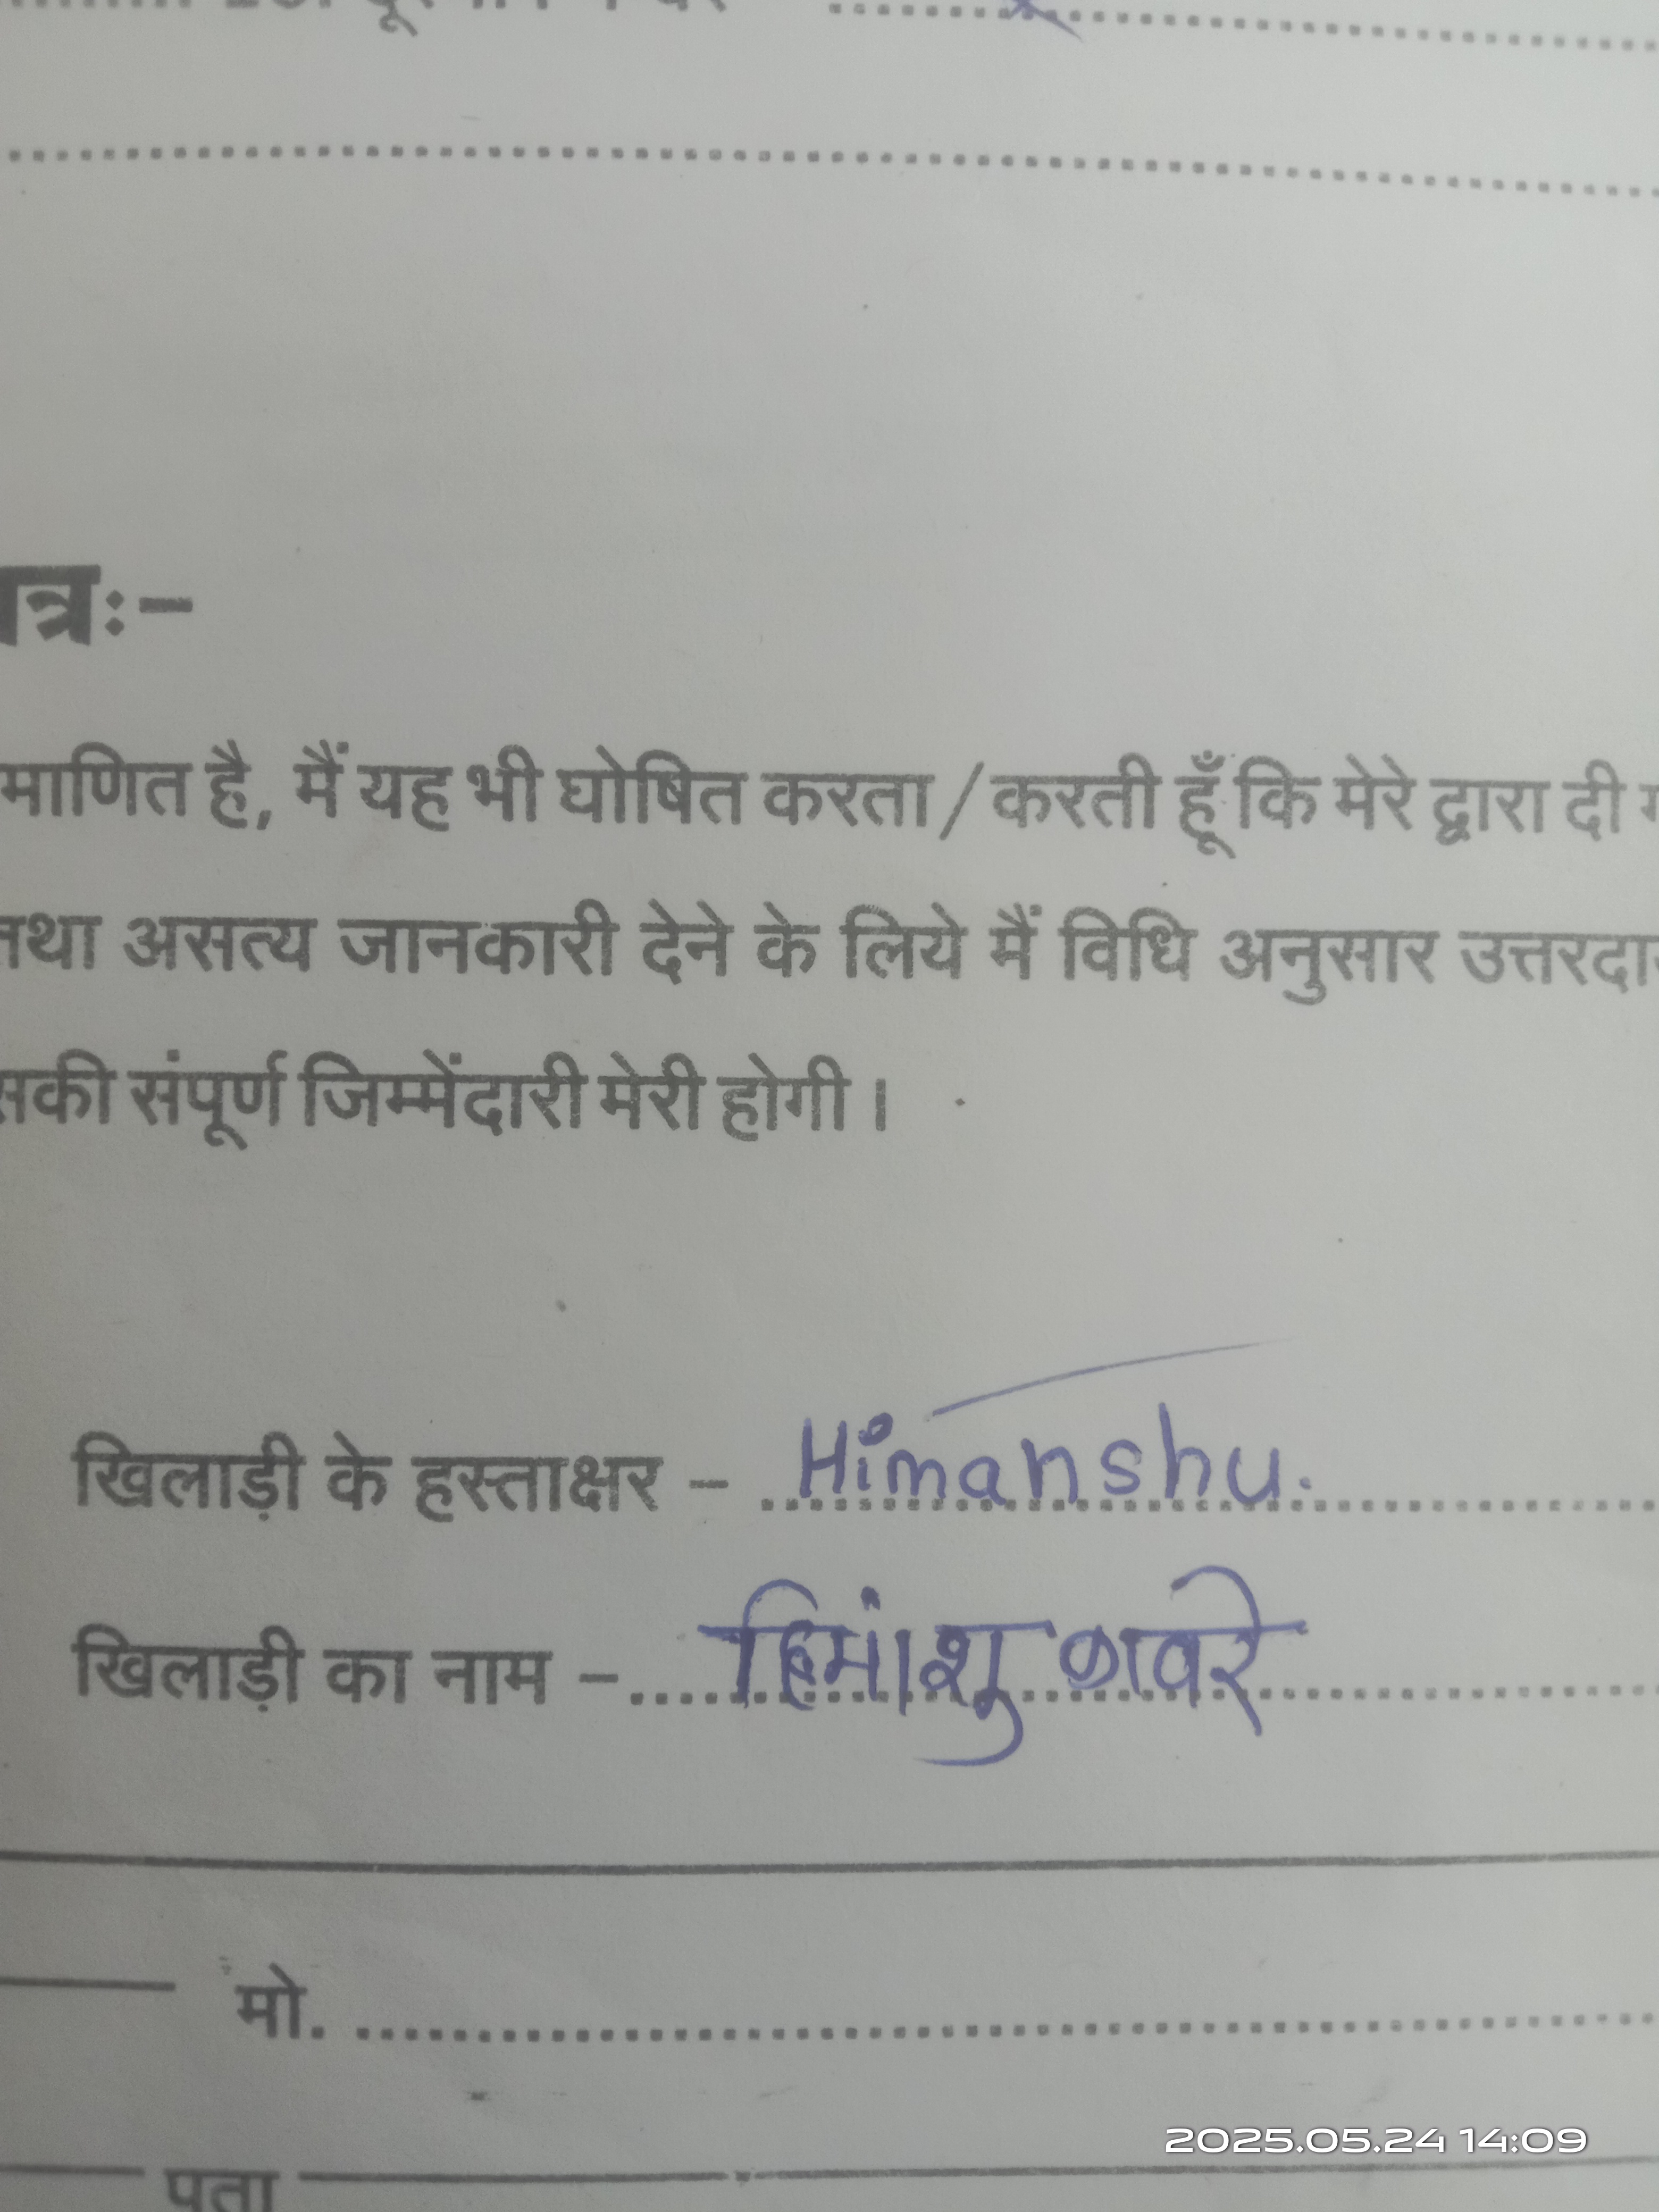 पत्रः-
माणित है, मैं यह भी घोषित करता/करती हूँ कि मेरे द्वारा दी
तथा असत्य जानकारी देने के लिये मैं विधि अनुसार उत्तरदा
सकी संपूर्ण जिम्मेंदारी मेरी होगी।
खिलाड़ी के हस्ताक्षर - Himanshu.
खिलाड़ी का नाम - हिमांशु
मो.
पता
2025.05.24 14:09